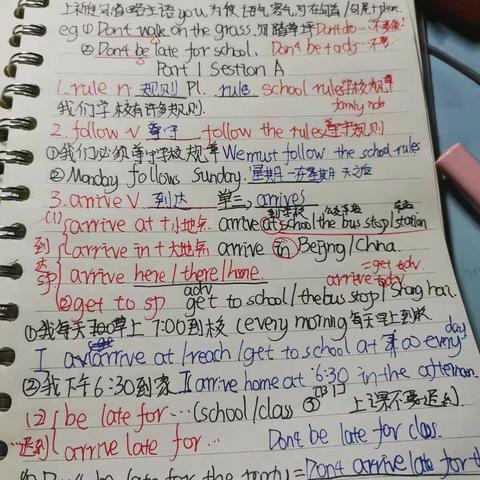 上祈使句省略主语you,为使语气客气可在句首/句尾+please.
eg ① Don't walk on the grass. 勿踏草坪 Don't do …不要做
② Don't be late for school. Don't be+adj …不要…
Part 1 Section A
1. rule n 规则 Pl. rule school rules学校规章
我们学校有许多规则. family rules
2. follow v 遵守 follow the rules遵守规则
①我们必须遵守学校规章 We must follow the school rules
② Monday follows Sunday. 星期一在星期天之后
3. arrive v. 到达 单三, arrives
到学校 公交车站 车站
(1) arrive at + 小地点 arrive at school/the bus stop/station
到达 arrive in + 大地点 arrive in Beijing/China.
sp arrive here/there/home. =get to adv
adv arrive to adv
②get to sp get to school/the bus stop/Shang hai.
①我每天早上 7:00到校 (every morning 每天早上到校
I arrive at/reach/get to school at 7:00 every day
②我下午6:30到家 I arrive home at 6:30 in the afternoon.
(2) be late for … (school/class ③ 上课不要迟到.
…迟到 arrive late for … Don't be late for class.
Don't be late for the party = Don't arrive late for the